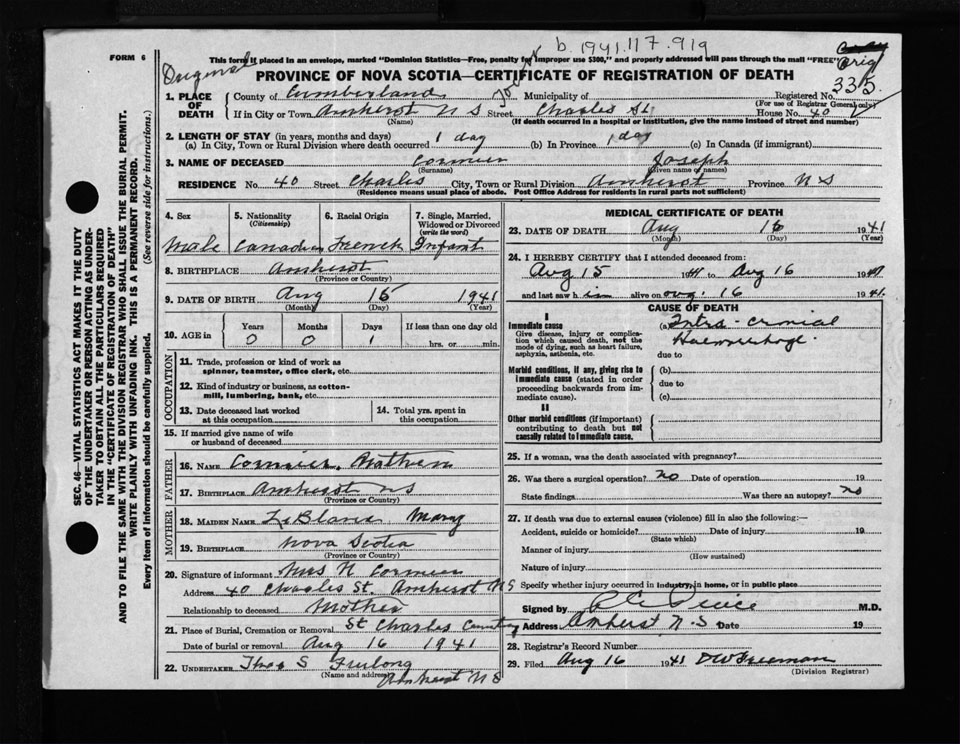 b. 1941.117.919
FORM 6
Original
This form if placed in an envelope, marked "Dominion Statistics—Free, penalty for improper use $300," and properly addressed will pass through the mail "FREE"
Orig
335
PROVINCE OF NOVA SCOTIA—CERTIFICATE OF REGISTRATION OF DEATH
1. PLACE OF DEATH
County of Cumberland Municipality of Registered No.
(For use of Registrar General only)
If in City or Town Amherst N S Street Charles St. House No. 40
(Name) (If death occurred in a hospital or institution, give the name instead of street and number)
2. LENGTH OF STAY (in years, months and days)
(a) In City, Town or Rural Division where death occurred 1 day (b) In Province 1 day (c) In Canada (if immigrant)
3. NAME OF DECEASED Cormier Joseph
(Surname) (Given name or names)
RESIDENCE No. 40 Street Charles City, Town or Rural Division Amherst Province N S
(Residence means usual place of abode. Post Office Address for residents in rural parts not sufficient)
4. Sex 5. Nationality (Citizenship) 6. Racial Origin 7. Single, Married, Widowed or Divorced (write the word)
Male Canadian French Infant
8. BIRTHPLACE Amherst
(Province or Country)
9. DATE OF BIRTH Aug 15 1941
(Month) (Day) (Year)
10. AGE in Years Months Days If less than one day old
0 0 1 hrs. or min.
OCCUPATION
11. Trade, profession or kind of work as spinner, teamster, office clerk, etc.
12. Kind of industry or business, as cotton-mill, lumbering, bank, etc.
13. Date deceased last worked at this occupation
14. Total yrs. spent in this occupation
15. If married give name of wife or husband of deceased
FATHER
16. NAME Cormier,
17. BIRTHPLACE Amherst N S
(Province or Country)
MOTHER
18. MAIDEN NAME LeBlanc Mary
19. BIRTHPLACE Nova Scotia
(Province or Country)
20. Signature of informant Mrs N Cormier
Address 40 Charles St. Amherst N S
Relationship to deceased Mother
21. Place of Burial, Cremation or Removal St Charles Cemetery
Date of burial or removal Aug 16 1941
22. UNDERTAKER Thos S Furlong
(Name and address) Amherst N S
MEDICAL CERTIFICATE OF DEATH
23. DATE OF DEATH Aug 16 1941
(Month) (Day) (Year)
24. I HEREBY CERTIFY that I attended deceased from:
Aug 15 1941 to Aug 16 1941
and last saw him alive on Aug. 16 1941.
CAUSE OF DEATH
I
Immediate cause
Give disease, injury or complication which caused death, not the mode of dying, such as heart failure, asphyxia, asthenia, etc.
(a) Intra-cranial Haemorrhage.
due to
Morbid conditions, if any, giving rise to immediate cause (stated in order proceeding backwards from immediate cause).
(b)
due to
(c)
II
Other morbid conditions (if important) contributing to death but not causally related to immediate cause.
25. If a woman, was the death associated with pregnancy?
26. Was there a surgical operation? no Date of operation 19
State findings Was there an autopsy? no
27. If death was due to external causes (violence) fill in also the following:—
Accident, suicide or homicide? Date of injury 19
(State which)
Manner of injury
(How sustained)
Nature of injury
Specify whether injury occurred in industry, in home, or in public place
Signed by M.D.
Address Amherst N.S. Date 19
28. Registrar's Record Number
29. Filed Aug 16 1941 DW Freeman
(Division Registrar)
SEC. 46—VITAL STATISTICS ACT MAKES IT THE DUTY
OF THE UNDERTAKER OR PERSON ACTING AS UNDER-
TAKER TO OBTAIN ALL THE PARTICULARS REQUIRED
IN THE "CERTIFICATE OF REGISTRATION OF DEATH"
AND TO FILE THE SAME WITH THE DIVISION REGISTRAR WHO SHALL ISSUE THE BURIAL PERMIT.
WRITE PLAINLY WITH UNFADING INK. THIS IS A PERMANENT RECORD.
Every item of information should be carefully supplied. (See reverse side for instructions.)